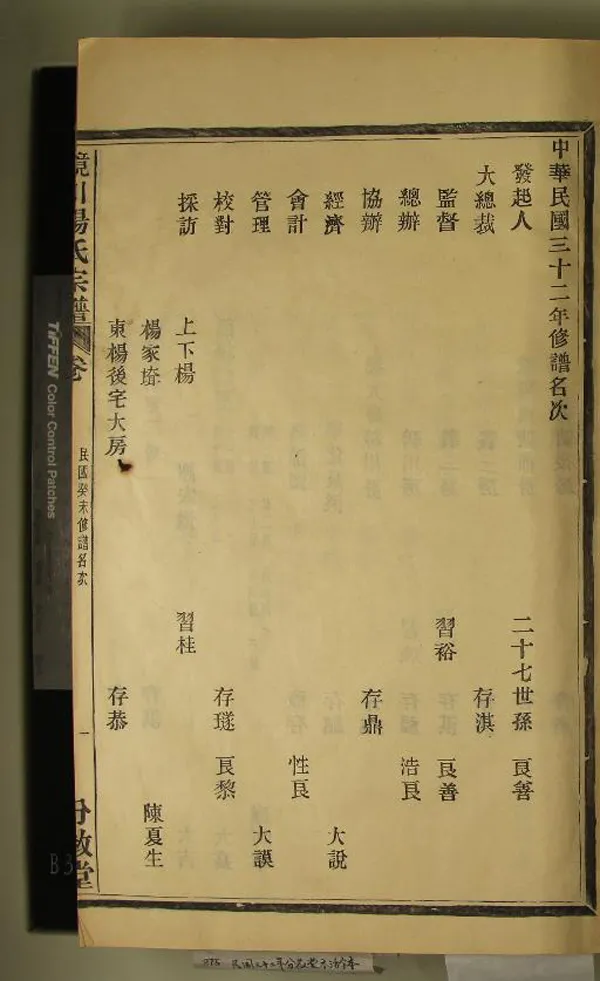 中華民國三十二年修譜名次
發起人 二十七世孫 良善
大總裁 存淇
監督 習裕 良善
總辦 浩良
協辦 存鼎
經濟 大說
會計 性良
管理 大謨
校對 存璲 良黎
採訪 上下楊 習桂
楊家塆 陳夏生
東楊後宅大房 存恭
鏡川楊氏宗譜 卷
民國癸未修譜名次
一
分敬堂
TIFFEN Color Control Patches